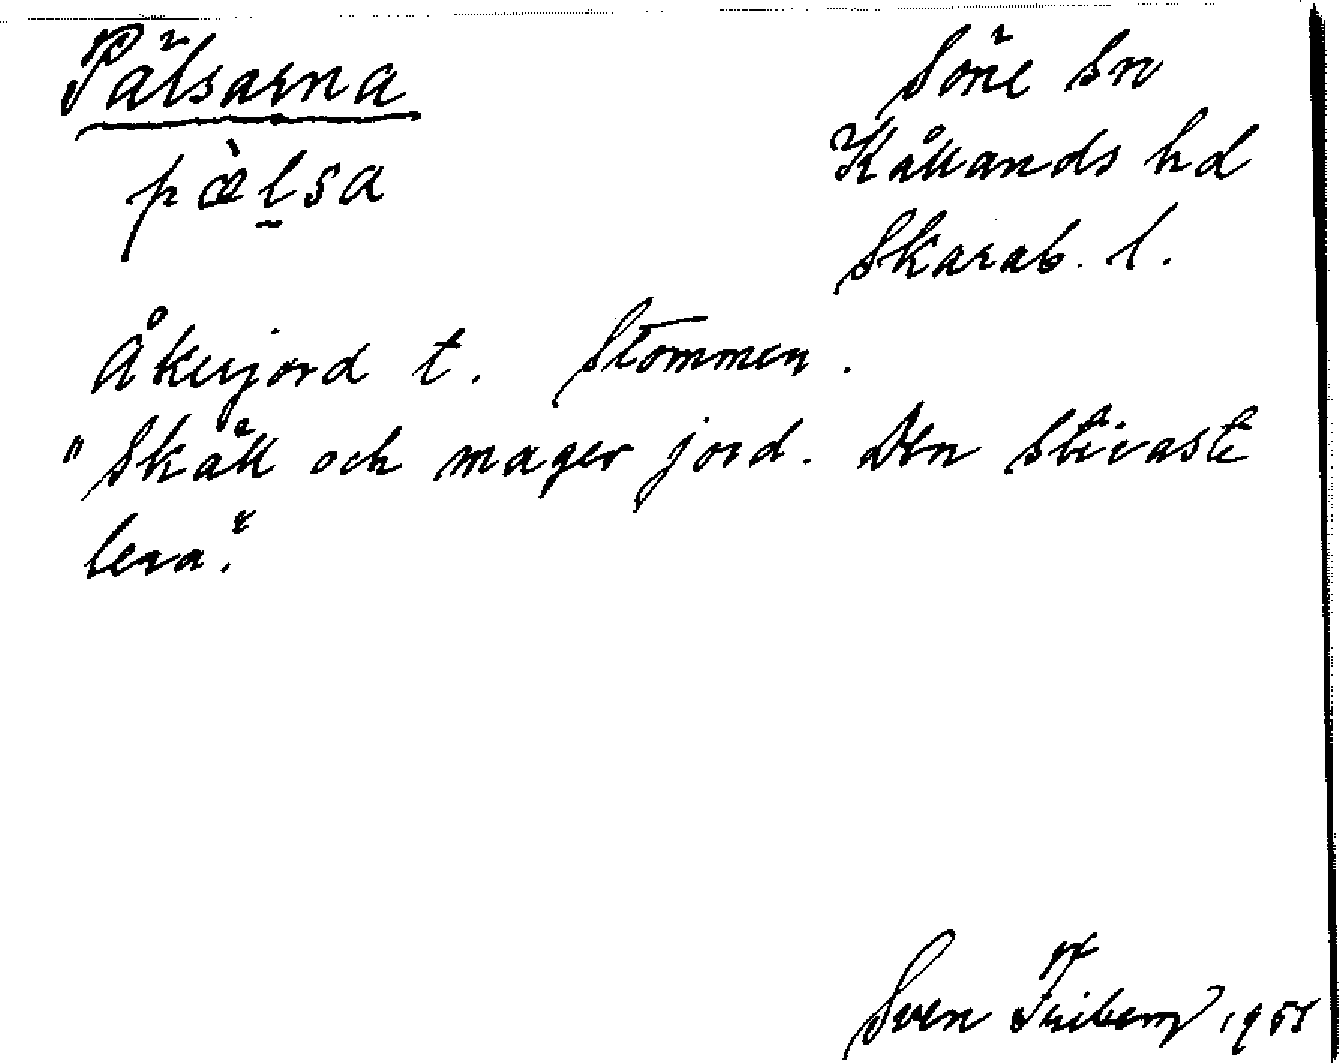 Pälsarna
Söne sn
pæ̀l̠sa
Kållands hd
Skarab. l.
Åkerjord t. Stommen.
"Skäll och mager jord. Den stivaste
lera."
Sven Friberg 1951